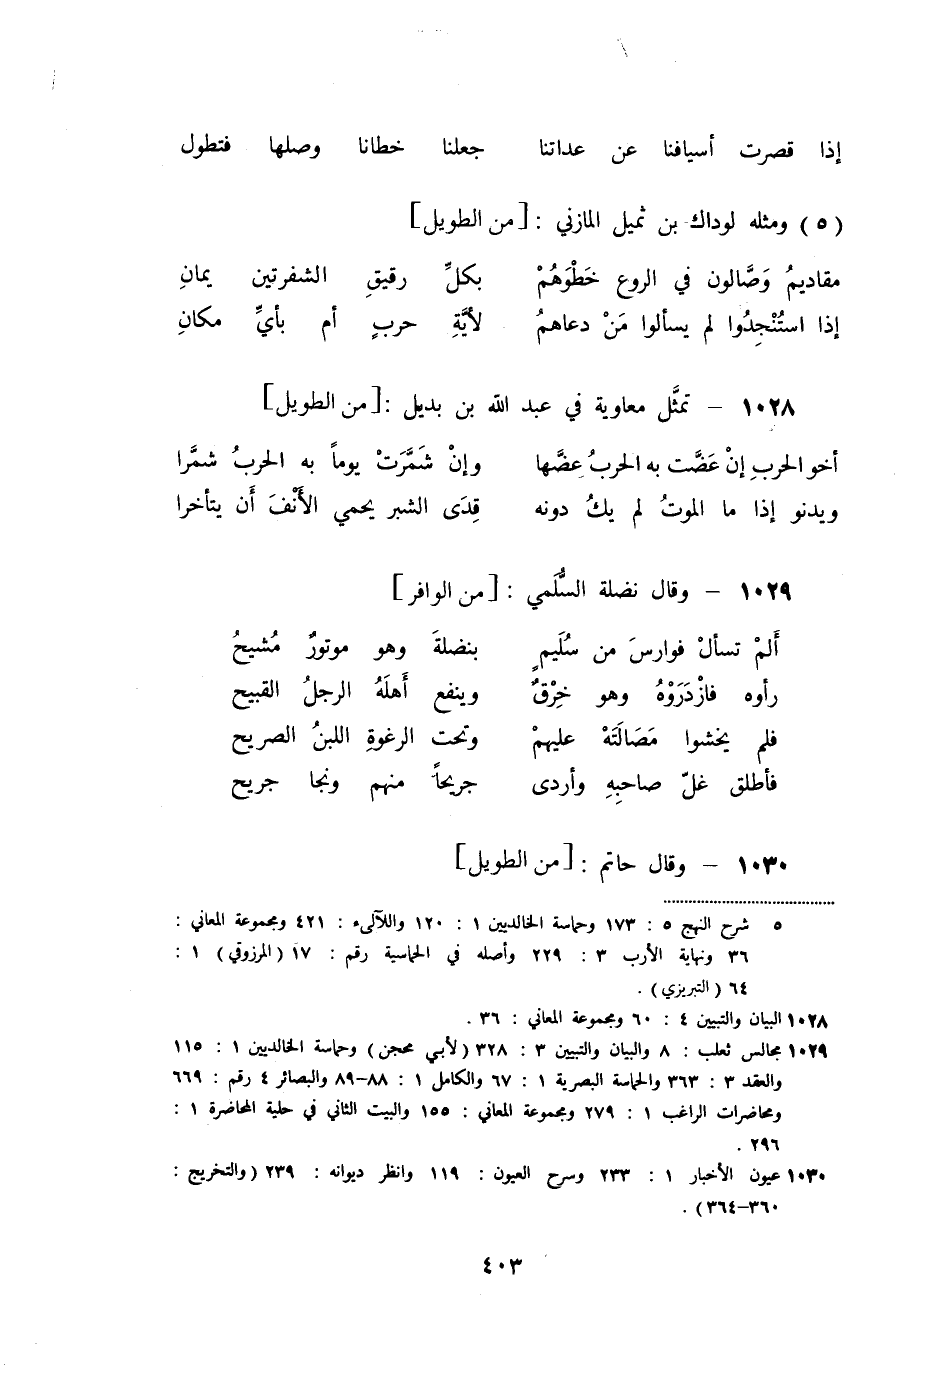 إذا قصرت أسيافنا عن عداتنا جعلنا خطانا وصلها فتطول
(٥) ومثله لوداك بن ثميل المازني : [من الطويل]
مقاديمُ وَصَّالون في الروع خَطْوَهُمْ بكلِّ رقيقِ الشفرتين يمانِ
إذا استُنْجِدُوا لم يسألوا مَنْ دعاهمُ لأيَّةِ حربٍ أم بأيِّ مكانِ
١٠٢٨ – تمثَّل معاوية في عبد الله بن بديل : [من الطويل]
أخو الحربِ إنْ عَضَّت به الحربُ عضَّها وإنْ شَمَّرَتْ يوماً به الحربُ شمَّرا
ويدنو إذا ما الموتُ لم يكُ دونه قِدَى الشبر يحمي الأَنْفَ أَن يتأخرا
١٠٢٩ – وقال نضلة السُّلَمي : [من الوافر]
أَلمْ تسألْ فوارسَ من سُلَيمٍ بنضلةَ وهو موتورٌ مُشيحُ
رأوه فازْدَرَوْهُ وهو خِرْقٌ وينفع أَهلَهُ الرجلُ القبيح
فلم يخشوا مَصَالَتَهْ عليهمْ وتحت الرغوةِ اللبنُ الصريح
فأطلق غلّ صاحبِهِ وأردى جريحاً منهم ونجا جريح
١٠٣٠ – وقال حاتم : [من الطويل]
٥ شرح النهج ٥ : ١٧٣ وحماسة الخالديين ١ : ١٢٠ واللآلىء : ٤٢١ ومجموعة المعاني :
٣٦ ونهاية الأرب ٣ : ٢٢٩ وأصله في الحماسية رقم : ١٧ (المرزوقي) ١ :
٦٤ (التبريزي) .
١٠٢٨ البيان والتبيين ٤ : ٦٠ ومجموعة المعاني : ٣٦ .
١٠٢٩ مجالس ثعلب : ٨ والبيان والتبيين ٣ : ٣٢٨ (لأبي محجن) وحماسة الخالديين ١ : ١١٥
والعقد ٣ : ٣٦٣ والحماسة البصرية ١ : ٦٧ والكامل ١ : ٨٨–٨٩ والبصائر ٤ رقم : ٦٦٩
ومحاضرات الراغب ١ : ٢٧٩ ومجموعة المعاني : ١٥٥ والبيت الثاني في حلية المحاضرة ١ :
٢٩٦ .
١٠٣٠ عيون الأخبار ١ : ٢٣٣ وسرح العيون : ١١٩ وانظر ديوانه : ٢٣٩ (والتخريج :
٣٦٠–٣٦٤) .
٤٠٣